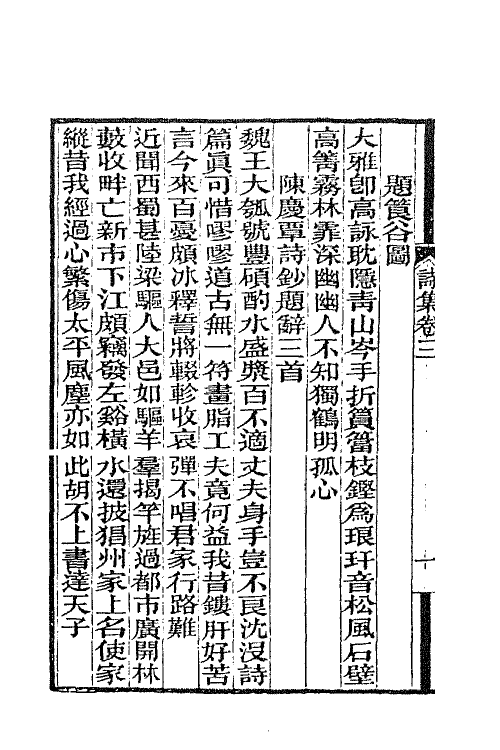 詩集卷三
十
題篔谷圖
大雅卽高詠耽隱靑山岑手折篔簹枝鏗爲琅玕音松風石壁
高篝霧林霏深幽幽人不知獨鶴明孤心
陳慶覃詩鈔題辭三首
魏王大瓠號豐碩酌水盛漿百不適丈夫身手豈不良沈沒詩
篇眞可惜嘐嘐道古無一符畫脂工夫竟何益我昔鏤肝好苦
言今來百憂頗冰釋誓將輟軫收哀彈不唱君家行路難
近聞西蜀甚陸梁驅人大邑如驅羊羣揭竿旌過都市廣開林
藪收畔亡新市下江頗竊發左谿橫水還披猖州家上名使家
縱昔我經過心繁傷太平風塵亦如此胡不上書達天子